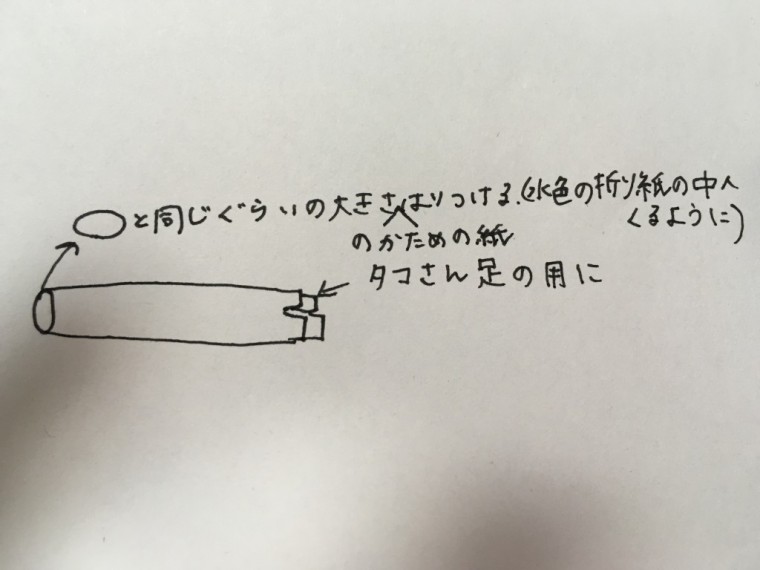 と同じぐらいの大きさはりつける。(水色の折り紙の中へ
くるように)
のかための紙
タコさん足の用に